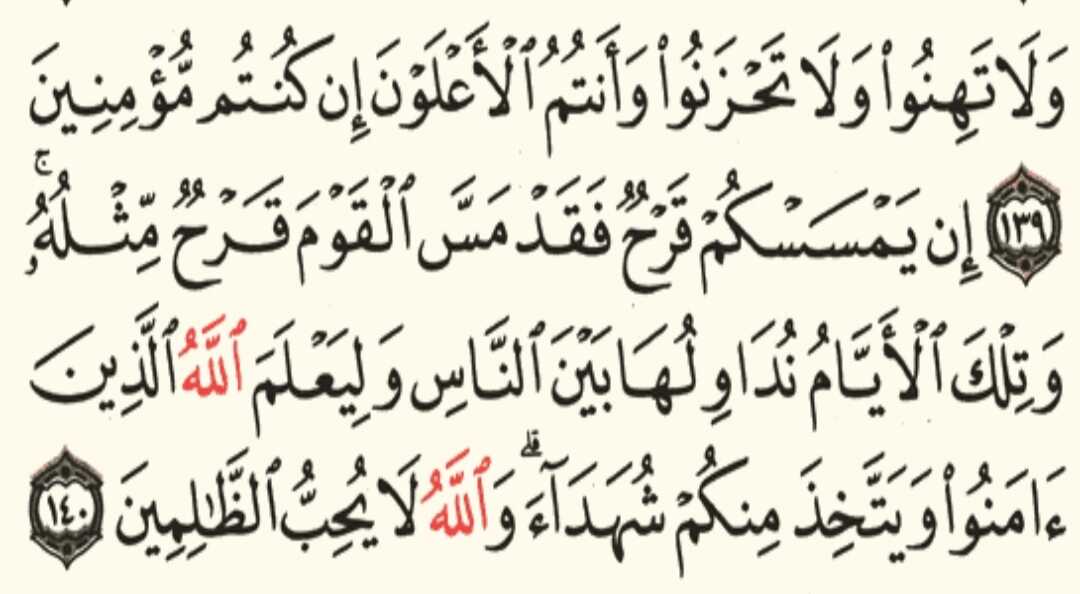 وَلَا تَهِنُوا۟ وَلَا تَحْزَنُوا۟ وَأَنتُمُ ٱلْأَعْلَوْنَ إِن كُنتُم مُّؤْمِنِينَ
١٣٩ إِن يَمْسَسْكُمْ قَرْحٌ فَقَدْ مَسَّ ٱلْقَوْمَ قَرْحٌ مِّثْلُهُۥ ۚ
وَتِلْكَ ٱلْأَيَّامُ نُدَاوِلُهَا بَيْنَ ٱلنَّاسِ وَلِيَعْلَمَ ٱللَّهُ ٱلَّذِينَ
ءَامَنُوا۟ وَيَتَّخِذَ مِنكُمْ شُهَدَآءَ ۗ وَٱللَّهُ لَا يُحِبُّ ٱلظَّـٰلِمِينَ ١٤٠